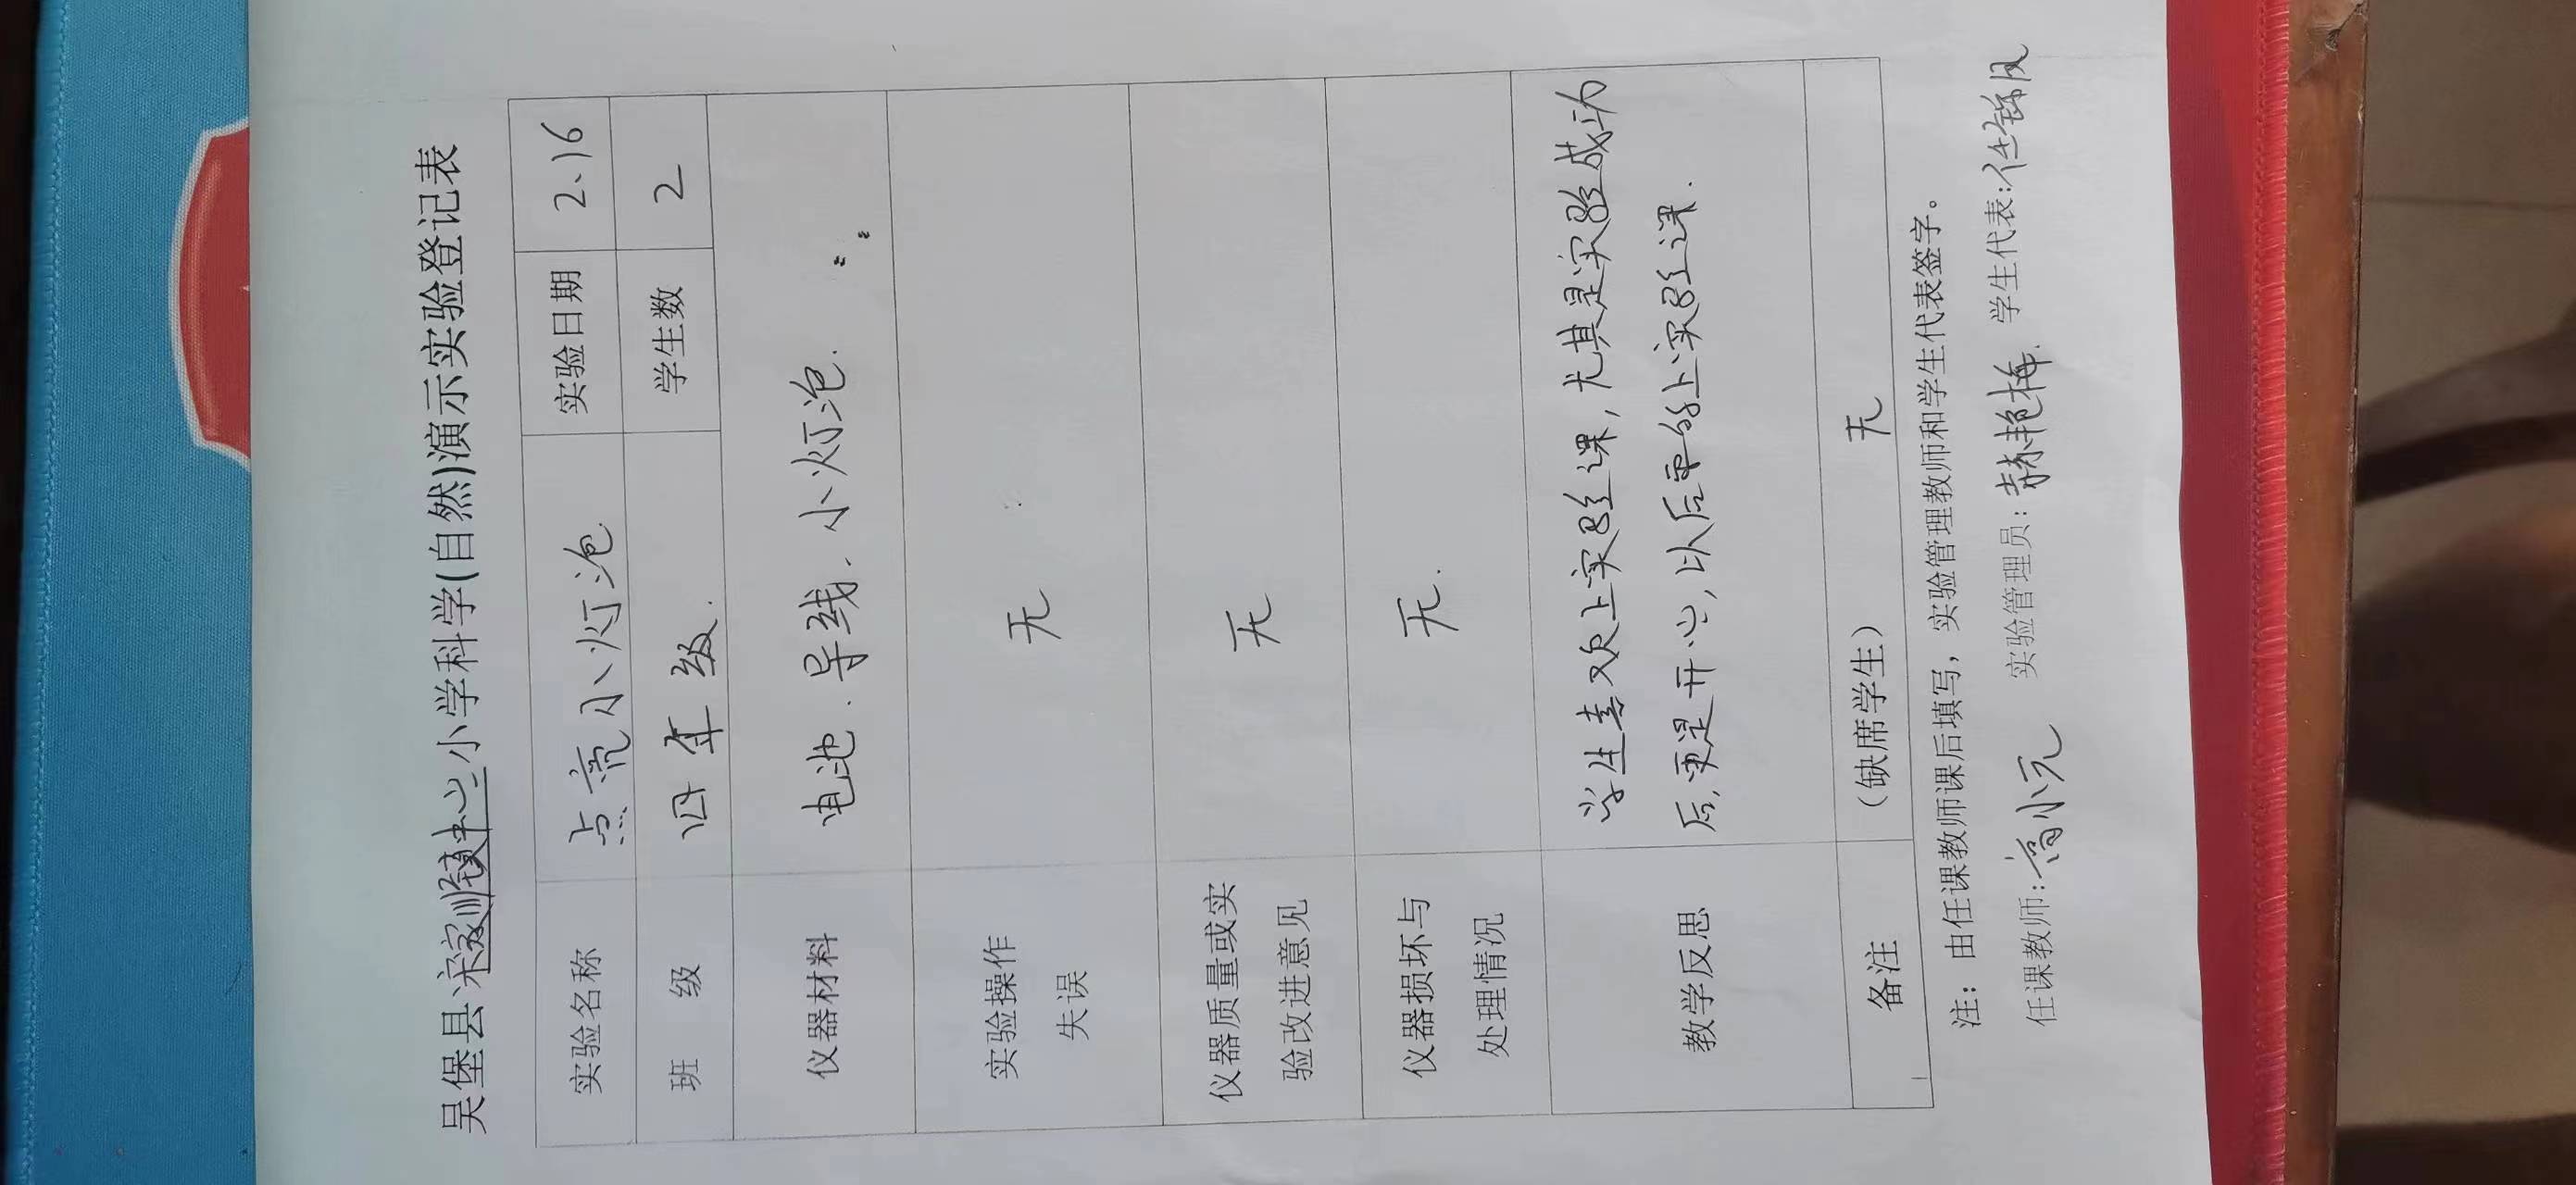 吴堡县宋家川镇中心小学科学(自然)演示实验登记表
实验名称 点亮小灯泡 实验日期 2、16
班 级 四年级. 学生数 2
仪器材料 电池、导线、小灯泡.
实验操作
失误
无
仪器质量或实
验改进意见
无
仪器损坏与
处理情况
无.
教学反思
学生喜欢上实验课,尤其是实验成功
后,更是开心,以后要多上实验课.
备注 (缺席学生) 无
注：由任课教师课后填写，实验管理教师和学生代表签字。
任课教师:高小元 实验管理员:赫艳梅. 学生代表:任